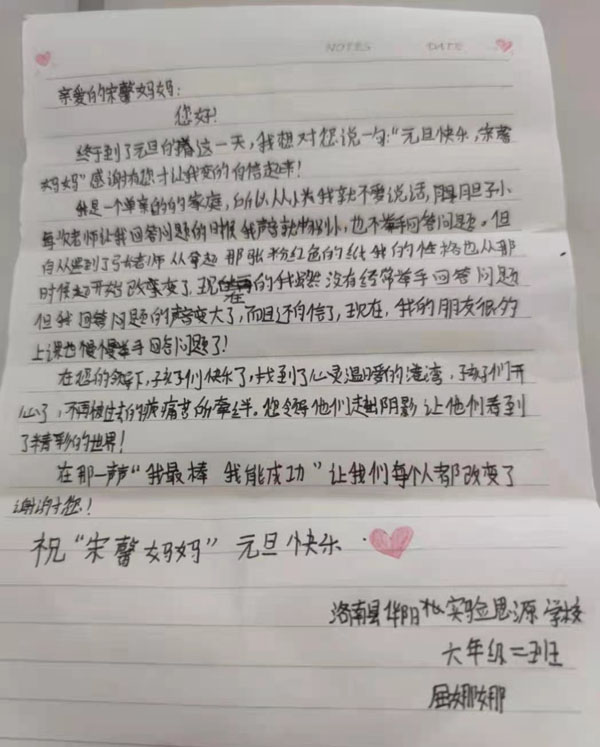 NOTES DATE
亲爱的宋馨妈妈:
您好!
终于到了元旦的这一天,我想对您说一句:"元旦快乐,宋馨
妈妈"感谢有您才让我变的自信起来!
我是一个单亲的的家庭,所以从小我就不爱说话,胆子小
每次老师让我回答问题的时候我声音就特别小,也不举手回答问题。但
自从遇到了弓老师从拿起那张粉红色的纸我的性格也从那
时候起开始改变了,现在的我虽然没有经常举手回答问题
但我回答问题的声音变大了,而且还自信了,现在,我的朋友很多
上课也慢慢举手回答问题了!
在您的领导下,孩子们快乐了,找到了心灵温暖的港湾,孩子们开
心了,不再被过去的疾痛苦所牵绊。您领导他们走出阴影让他们看到
了精彩的世界!
在那一声"我最棒 我能成功"让我们每个人都改变了
谢谢您!
祝"宋馨妈妈"元旦快乐.
洛南县华阳 实验思源学校
六年级二班
屈娜娜